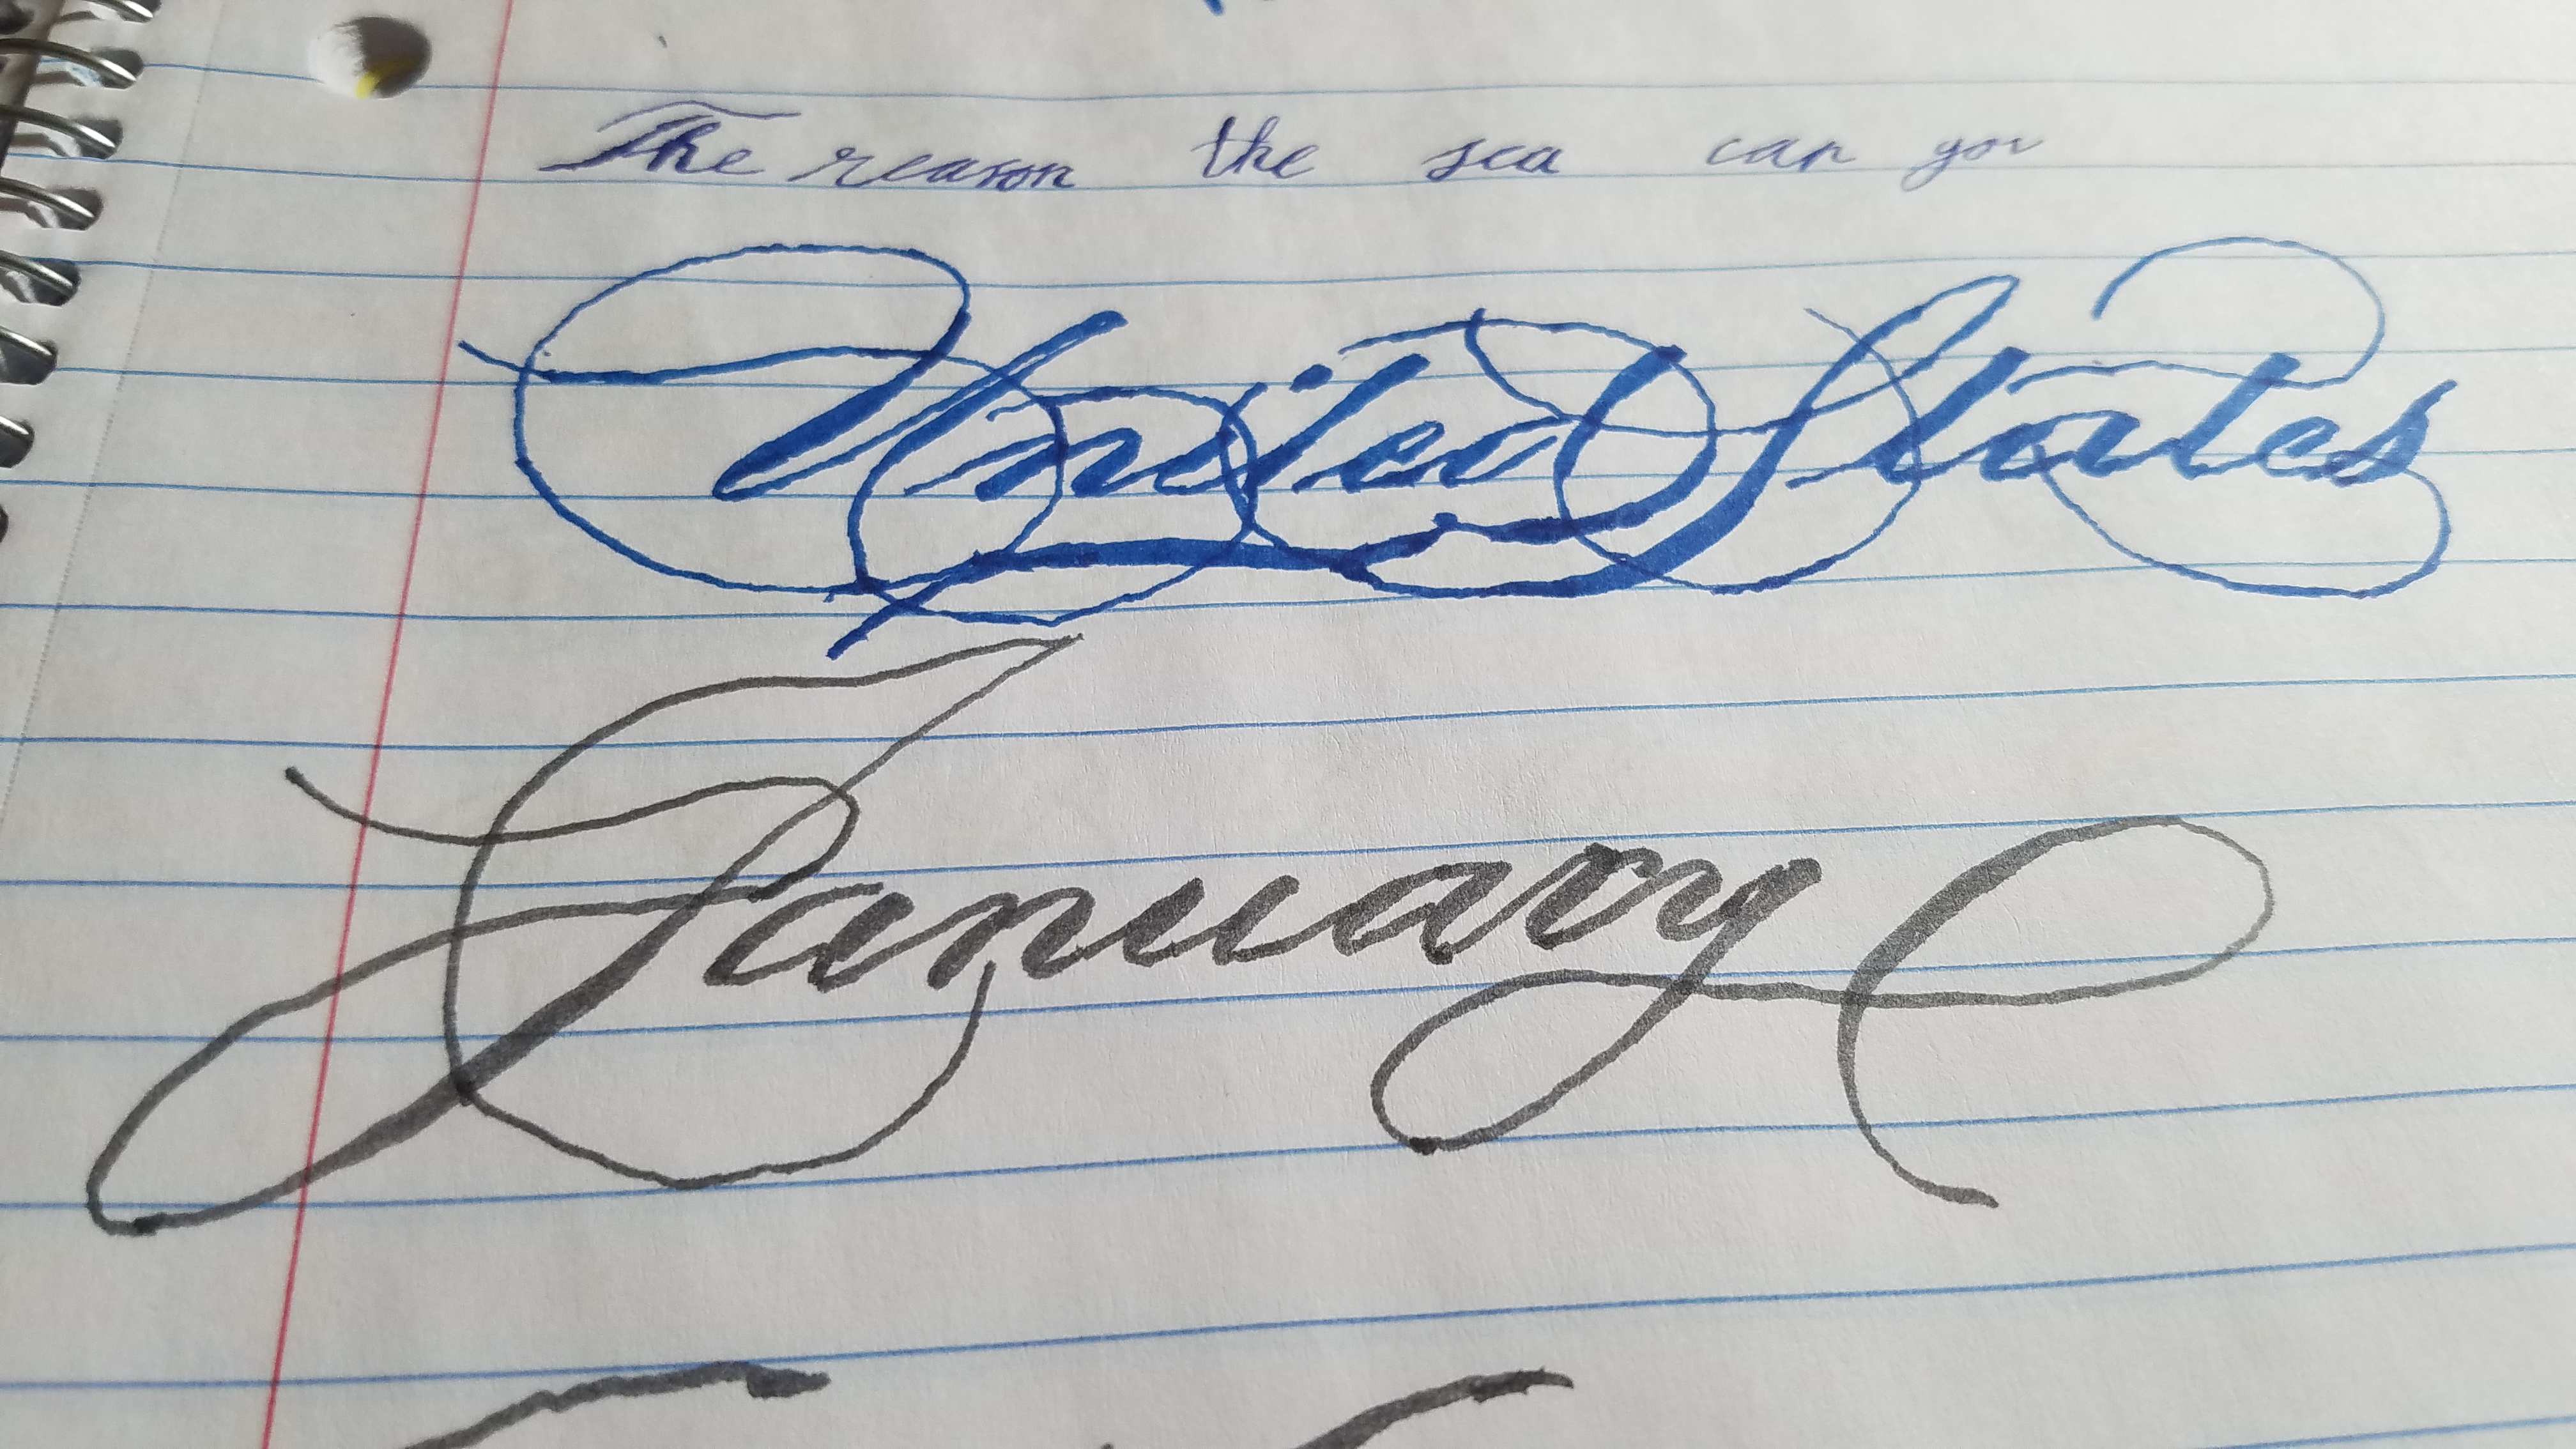 The reason the sea can you
United States
January